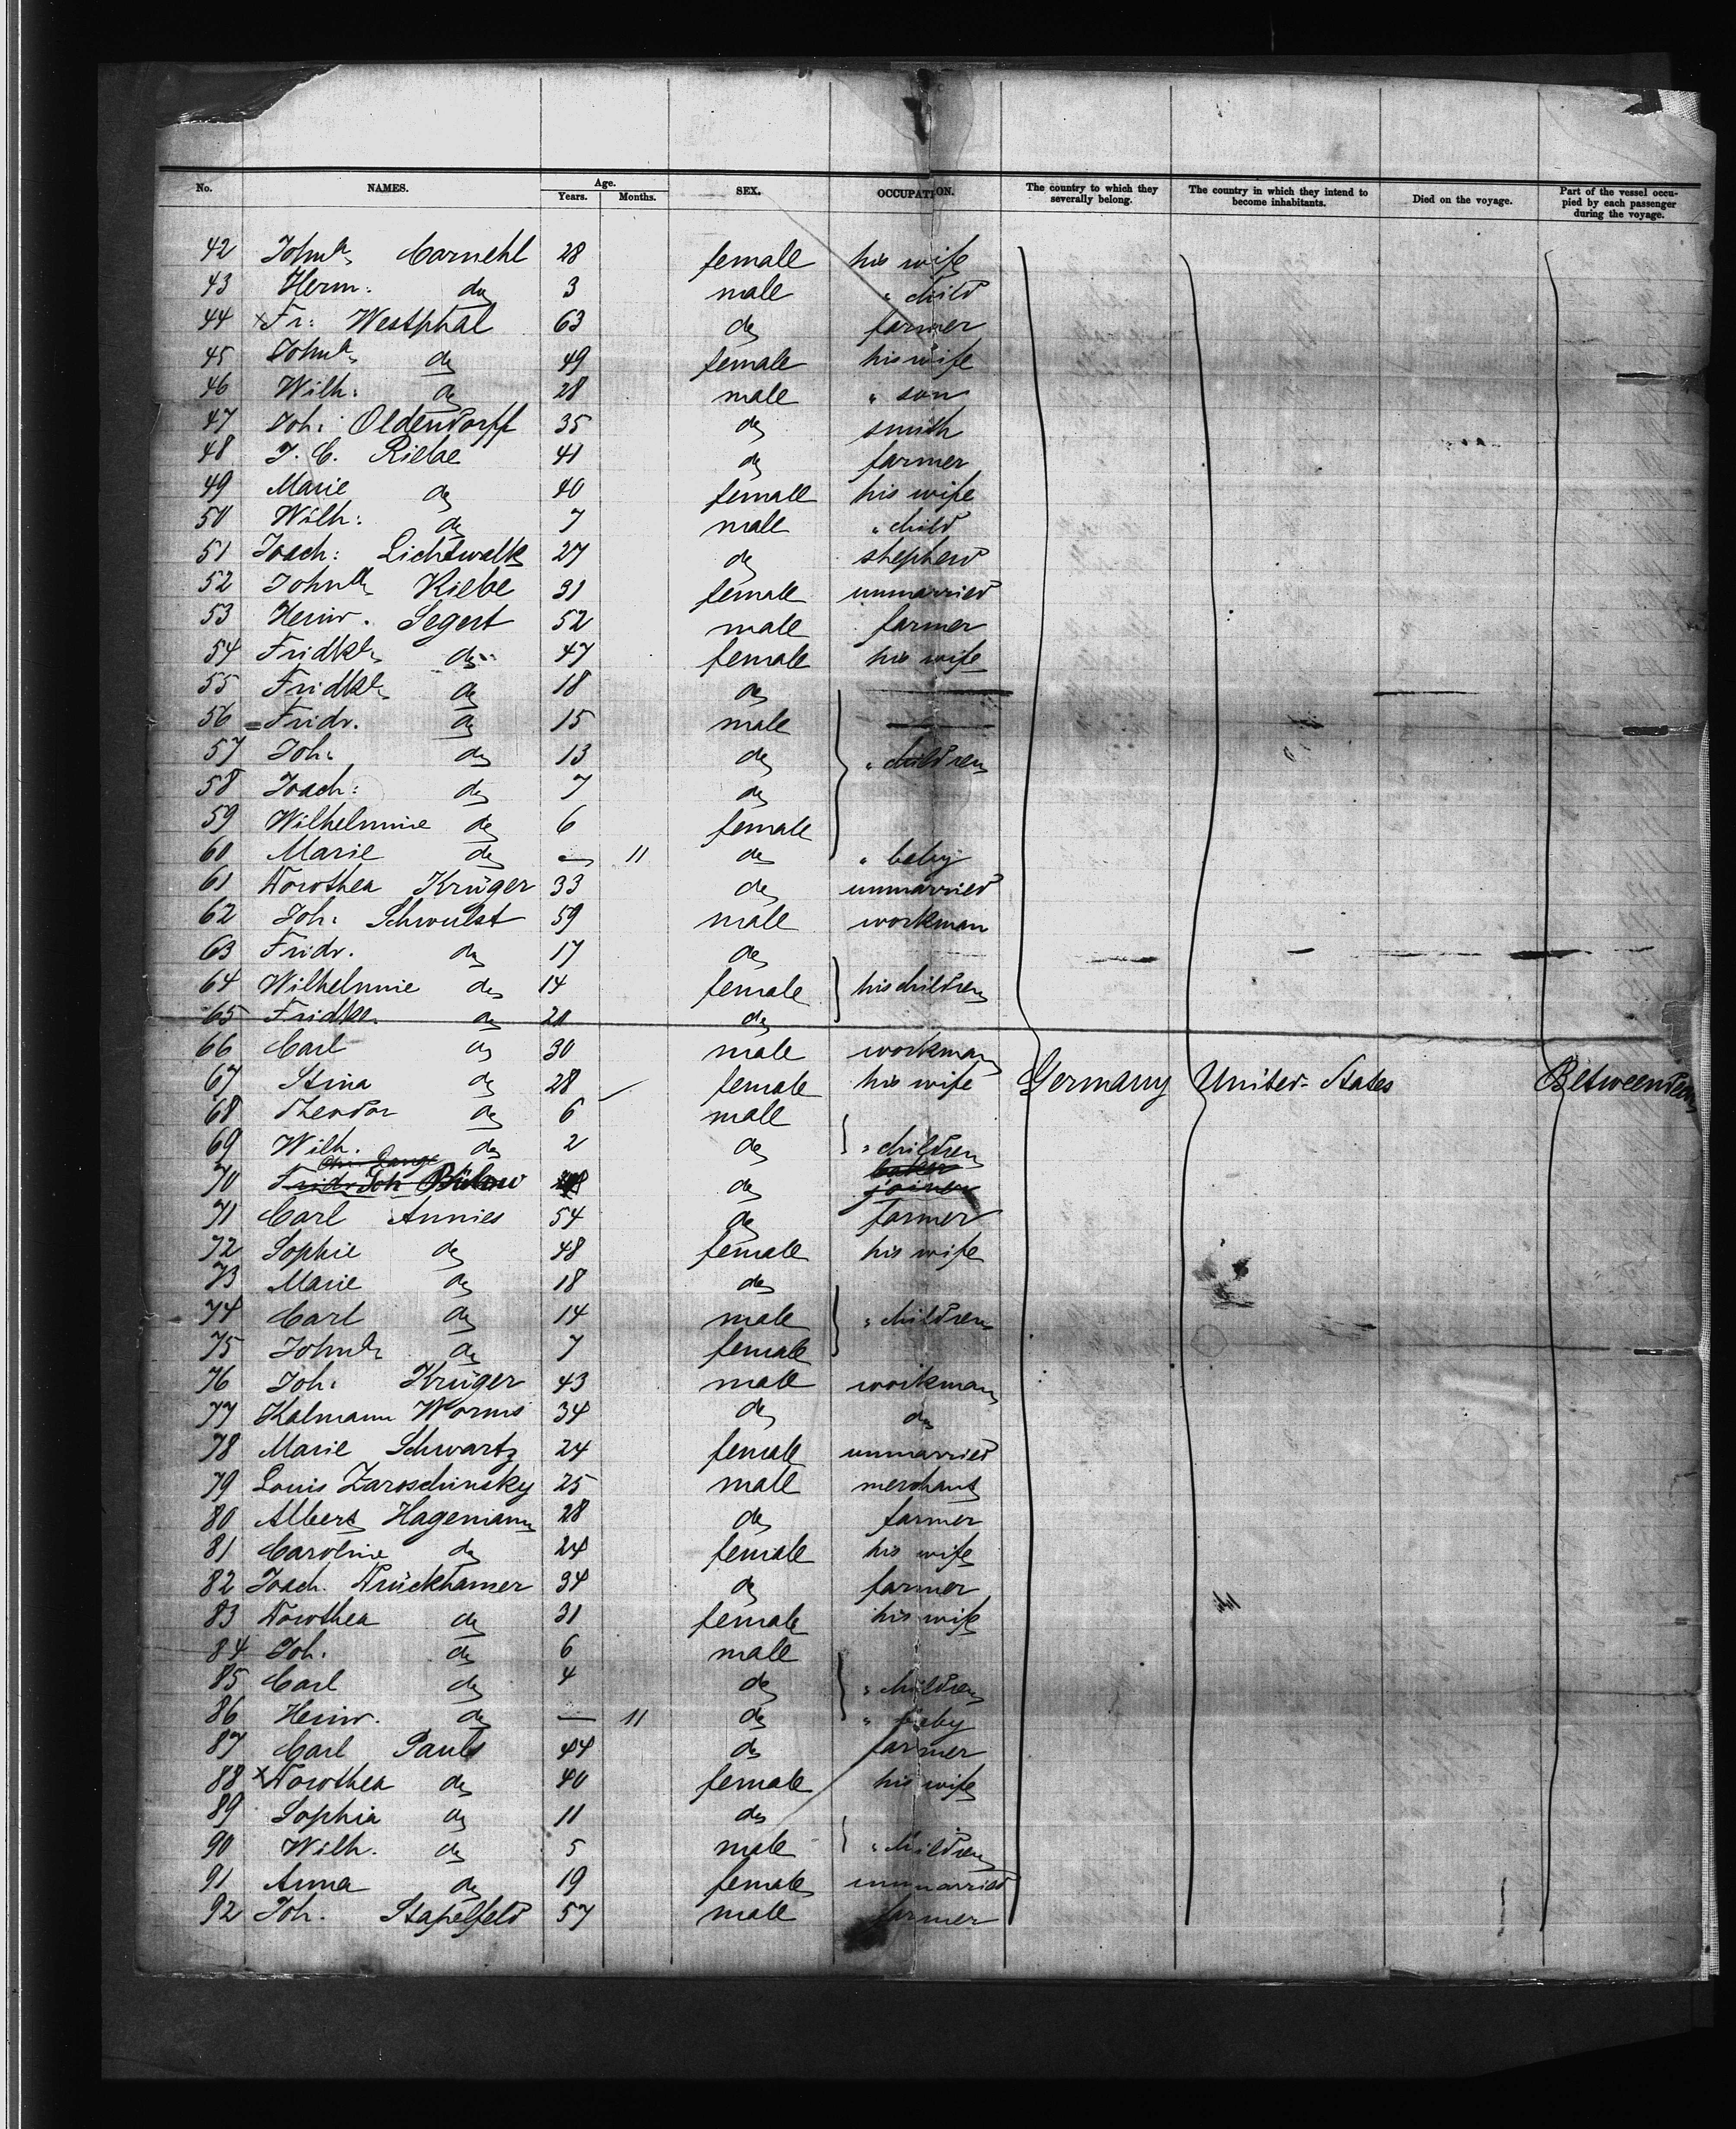 No. NAMES. Age. Years. Months. SEX. OCCUPATION. The country to which they severally belong. The country in which they intend to become inhabitants. Died on the voyage. Part of the vessel occupied by each passenger during the voyage.
42 Johna Carnehl 28 female his wife
43 Herm: do 3 male " child
44 ×Fr: Westphal 63 do farmer
45 Johna do 49 female his wife
46 Wilh: do 28 male " son
47 Joh: Oldendorff 35 do smith
48 J. C. Riebe 41 do farmer
49 Marie do 40 female his wife
50 Wilh: do 7 male " child
51 Joach: Lichtwalk 27 do shepherd
52 Johna Riebe 31 female unmarried
53 Heinr. Segert 52 male farmer
54 Fridke do 47 female his wife
55 Fridke do 18 do
56 Fridr. do 15 male
57 Joh: do 13 do " children
58 Joach: do 7 do
59 Wilhelmine do 6 female
60 Marie do — 11 do " baby
61 Dorothea Krüger 33 do unmarried
62 Joh: Schwulst 59 male workman
63 Fridr. do 17 do
64 Wilhelmine do 14 female his children
65 Fridke. do 20 do
66 Carl do 30 male workman
67 Stina do 28 female his wife Germany United-States
68 Theodor do 6 male
69 Wilh. do 2 do " children
70 Joh Bülow do joiner
71 Carl Annies 54 do farmer
72 Sophie do 48 female his wife
73 Marie do 18 do
74 Carl do 14 male " children
75 Johna do 7 female
76 Joh: Krüger 43 male workman
77 Kalmann Worms 34 do do
78 Marie Schwartz 24 female unmarried
79 Louis Zaroschinsky 25 male merchant
80 Albert Hagemann 28 do farmer
81 Caroline do 24 female his wife
82 Joach. Drückhamer 34 do farmer
83 Dorothea do 31 female his wife
84 Joh. do 6 male
85 Carl do 4 do " children
86 Heinr. do — 11 do " baby
87 Carl Pauls 44 do farmer
88 ×Dorothea do 40 female his wife
89 Sophia do 11 do
90 Wilh. do 5 male " children
91 Anna do 19 female unmarried
92 Joh. Stapelfeld 57 male farmer